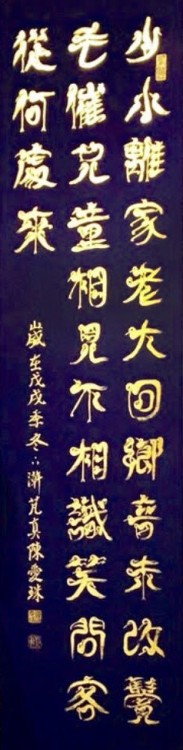 少小離家老大回鄉音未改鬢
毛催兒童相見不相識笑問客
從何處來
歲在戊戌季冬 芃真陳愛珠